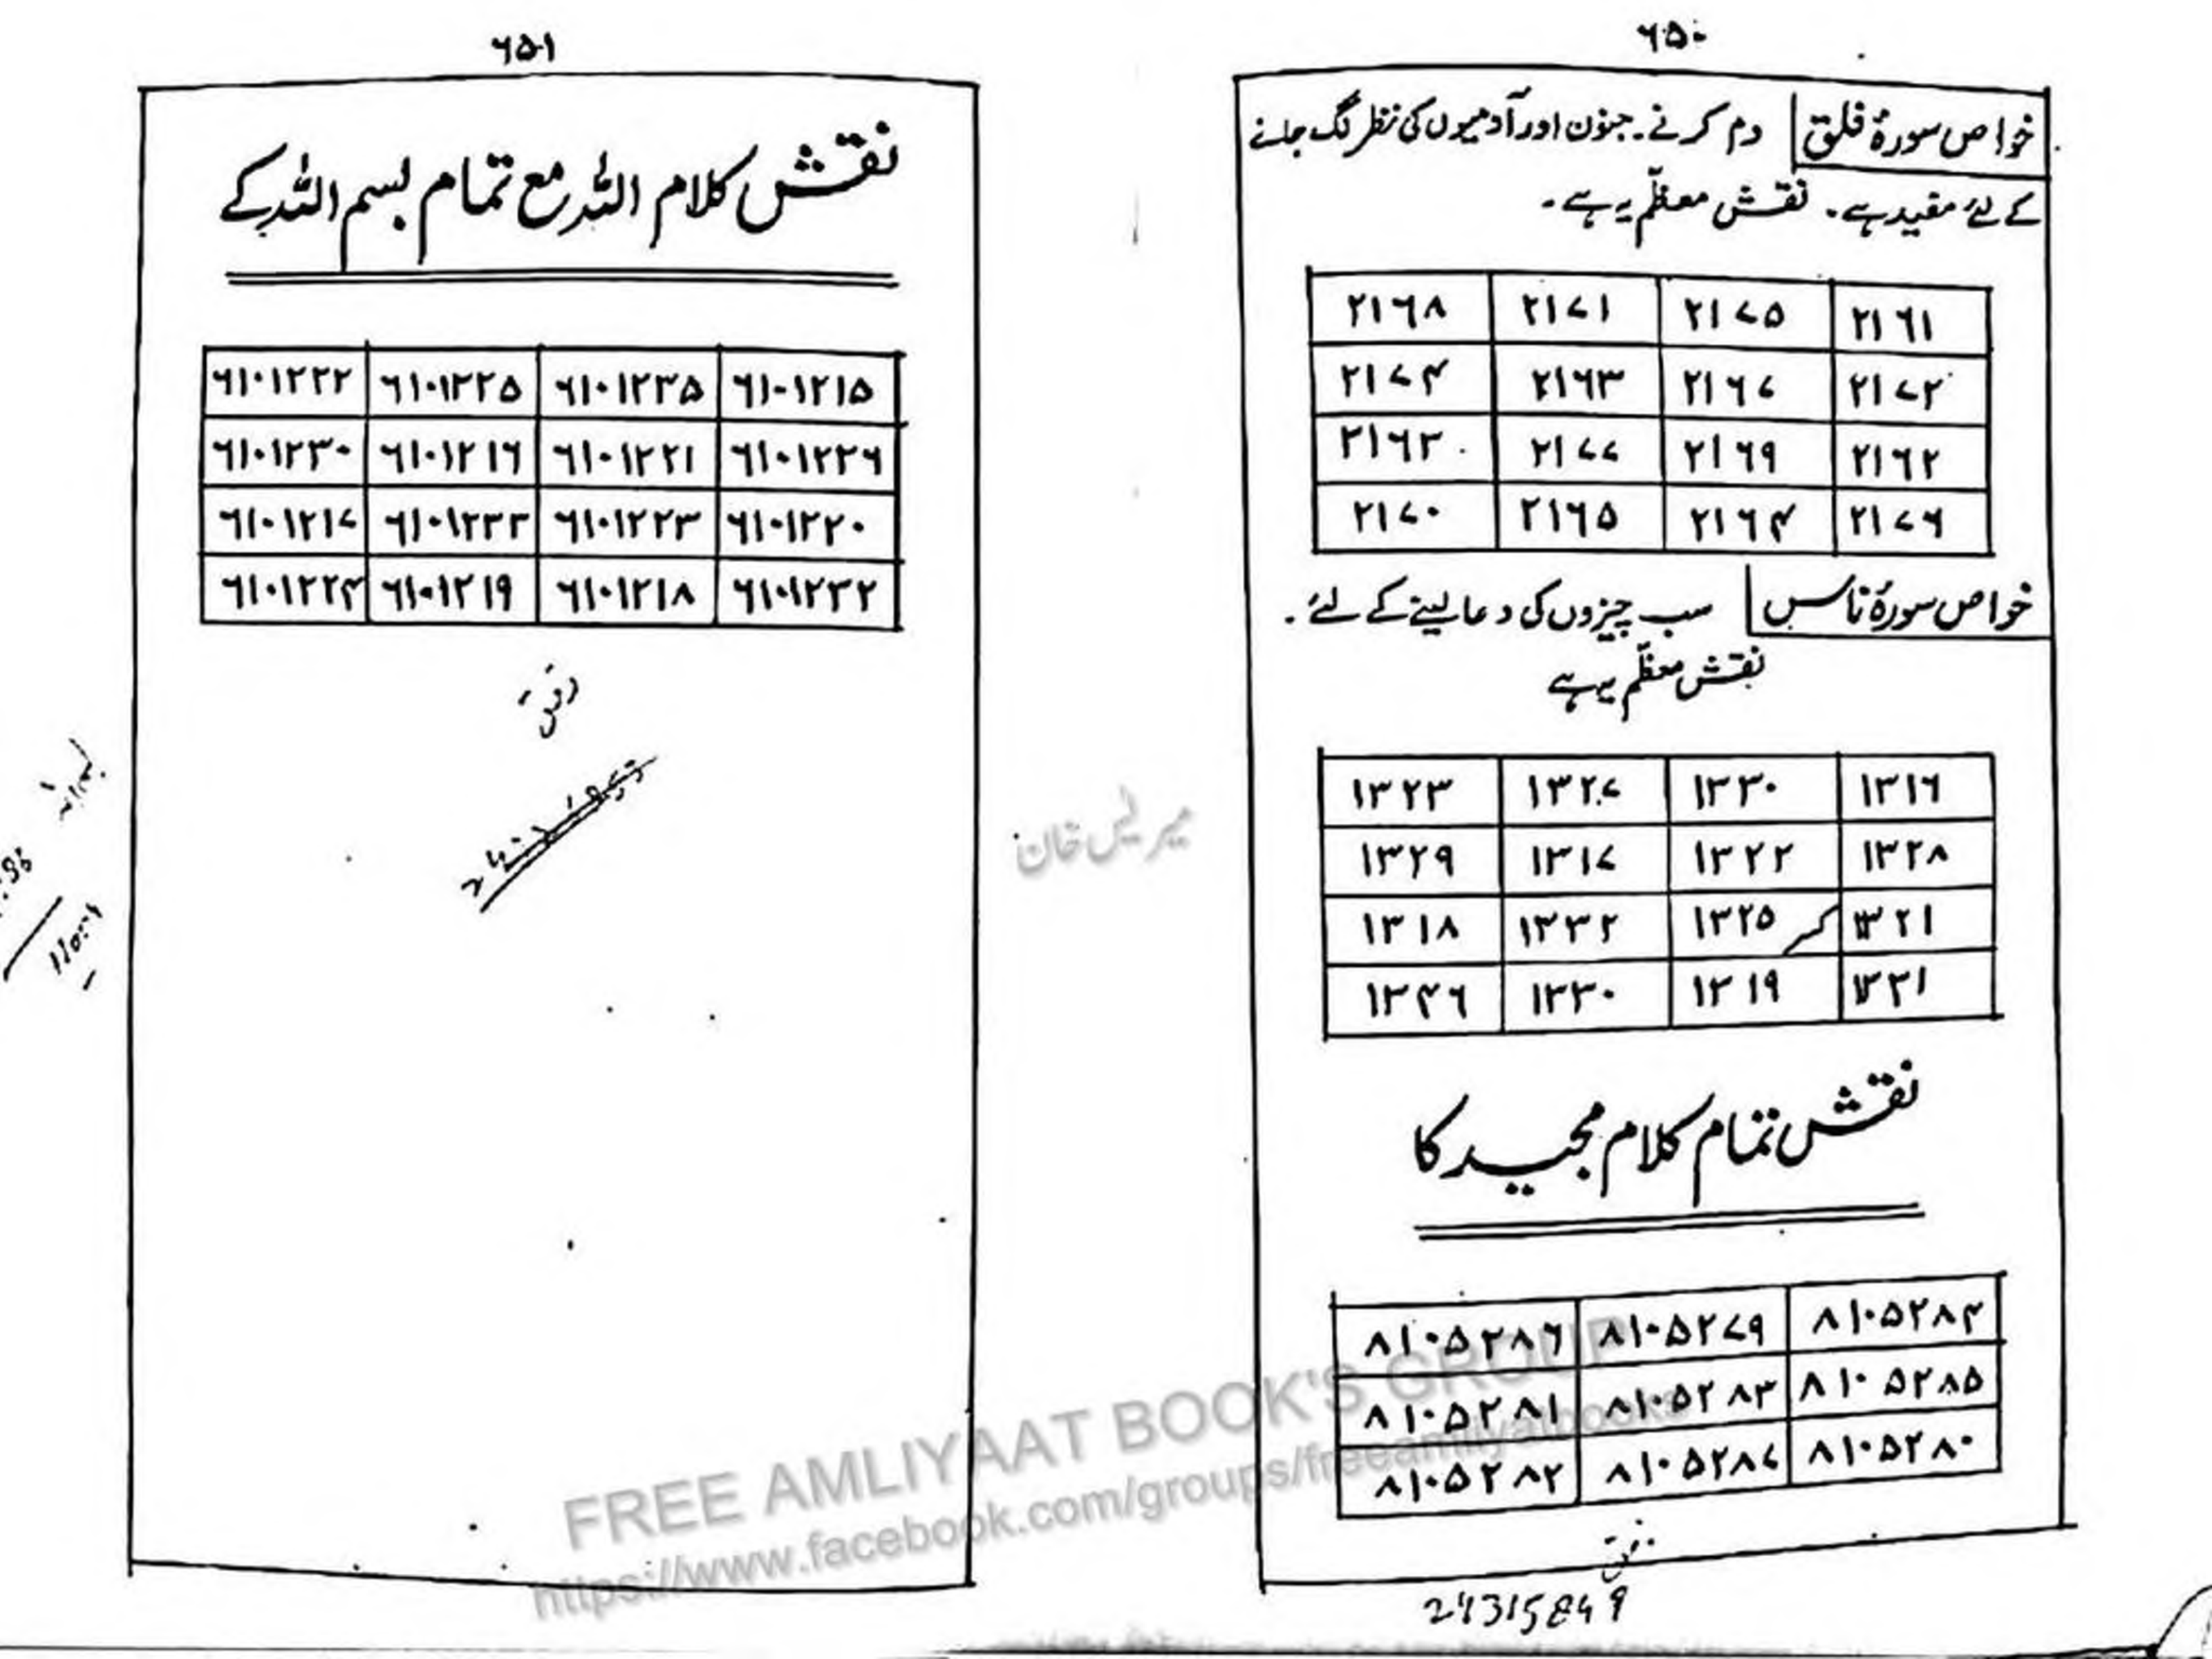 ۶۵۰
خواص سورۂ فلق دم کرنے۔ جنوں اور آدمیوں کی نظر لگ جانے
کے لئے مفید ہے۔ نقش معظّم یہ ہے۔
۲۱۶۸ ۲۱۷۱ ۲۱۷۵ ۲۱۶۱
۲۱۷۴ ۲۱۶۳ ۲۱۶۷ ۲۱۷۲
۲۱۶۳ ۲۱۷۷ ۲۱۶۹ ۲۱۶۲
۲۱۷۰ ۲۱۶۵ ۲۱۶۴ ۲۱۷۶
خواص سورۂ ناس سب چیزوں کی دعا لینے کے لئے۔
نقش معظّم یہ ہے
۱۳۲۳ ۱۳۲۷ ۱۳۳۰ ۱۳۱۶
۱۳۲۹ ۱۳۱۷ ۱۳۲۲ ۱۳۲۸
۱۳۱۸ ۱۳۳۲ ۱۳۲۵ ۱۳۲۱
۱۳۴۶ ۱۳۳۰ ۱۳۱۹ ۱۳۳۱
نقش تمام کلام مجید کا
۸۱۰۵۲۸۶ ۸۱۰۵۲۷۹ ۸۱۰۵۲۸۴
۸۱۰۵۲۸۱ ۸۱۰۵۲۸۳ ۸۱۰۵۲۸۵
۸۱۰۵۲۸۲ ۸۱۰۵۲۸۷ ۸۱۰۵۲۸۰
۶۵۱
نقش کلام اللہ مع تمام بسم اللہ کے
۶۱۰۱۲۲۲ ۶۱۰۱۲۲۵ ۶۱۰۱۲۳۵ ۶۱۰۱۲۱۵
۶۱۰۱۲۳۰ ۶۱۰۱۲۱۶ ۶۱۰۱۲۲۱ ۶۱۰۱۲۲۶
۶۱۰۱۲۱۷ ۶۱۰۱۲۳۳ ۶۱۰۱۲۲۳ ۶۱۰۱۲۲۰
۶۱۰۱۲۲۴ ۶۱۰۱۲۱۹ ۶۱۰۱۲۱۸ ۶۱۰۱۲۳۲
خان
FREE AMLIYAAT BOOK'S GROUP
https://www.facebook.com/groups/freeamliyatbooks